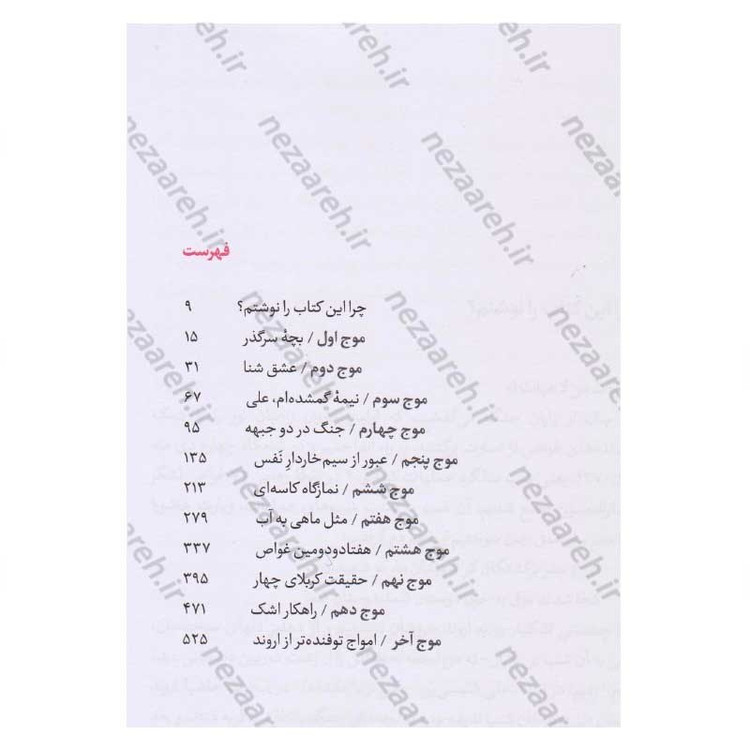 فهرست
چرا این کتاب را نوشتم؟ ۹
موج اول / بچهٔ سرگذر ۱۵
موج دوم / عشق شنا ۳۱
موج سوم / نیمهٔ گمشده‌ام، علی ۶۷
موج چهارم / جنگ در دو جبهه ۹۵
موج پنجم / عبور از سیم خاردارِ نَفس ۱۳۵
موج ششم / نمازگاه کاسه‌ای ۲۱۳
موج هفتم / مثل ماهی به آب ۲۷۹
موج هشتم / هفتادودومین غواص ۳۳۷
موج نهم / حقیقت کربلای چهار ۳۹۵
موج دهم / راهکار اشک ۴۷۱
موج آخر / امواج توفنده‌تر از اروند ۵۲۵
nezaareh.ir
nezaareh.ir
nezaareh.ir
nezaareh.ir
nezaareh.ir
nezaareh.ir
nezaareh.ir
nezaareh.ir
nezaareh.ir